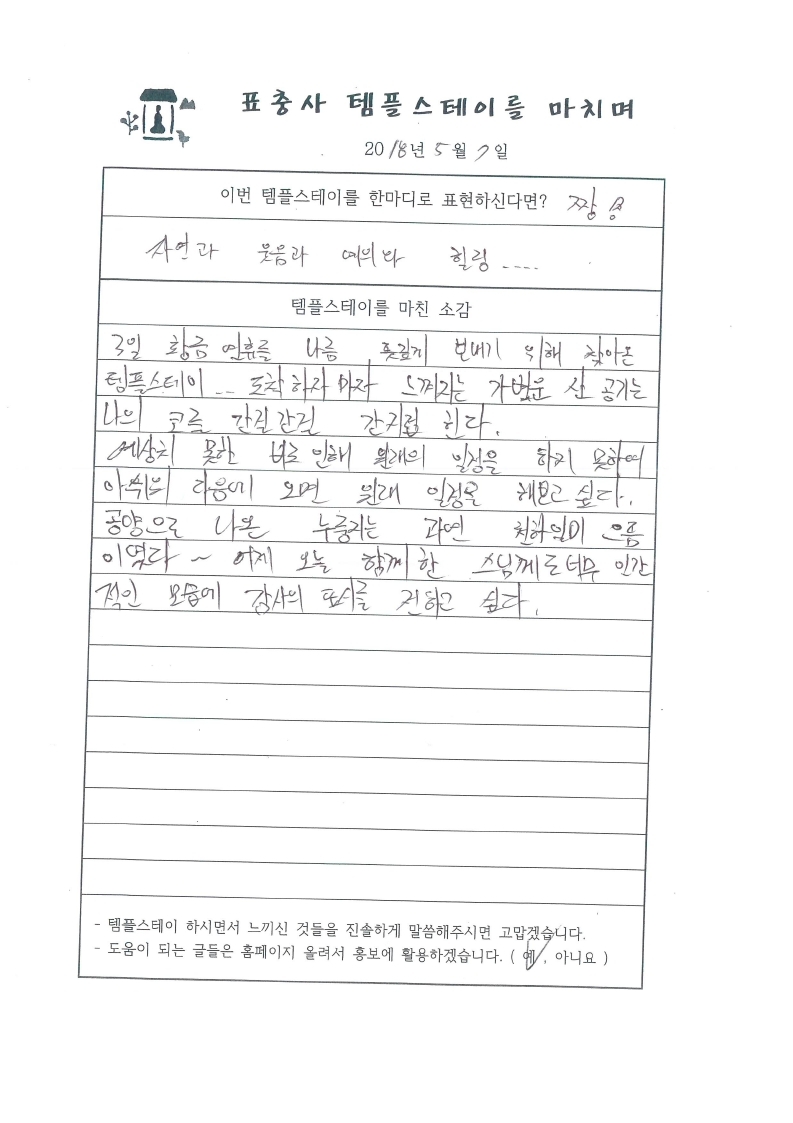 표충사 템플스테이를 마치며
2018년 5월 7일
이번 템플스테이를 한마디로 표현하신다면? 짱
자연과 웃음과 여의와 힐링....
템플스테이를 마친 소감
3일 황금 연휴를 나름 뜻깊게 보내기 위해 찾아온
템플스테이 ... 도착하자 마자 느껴지는 가벼운 산 공기는
나의 코를 간질간질 간지럽 힌다.
예상치 못한 비로 인해 원래의 일정을 하지 못하여
아쉬워 다음에 오면 원래 일정을 해보고 싶다.
공양으로 나온 누룽지는 과연 천하일미 으뜸
이였다 ~ 어제 오늘 함께 한 스님께도 너무 인간
적인 모습에 감사의 표시를 전하고 싶다.
- 템플스테이 하시면서 느끼신 것들을 진솔하게 말씀해주시면 고맙겠습니다.
- 도움이 되는 글들은 홈페이지 올려서 홍보에 활용하겠습니다. ( 예 , 아니요 )